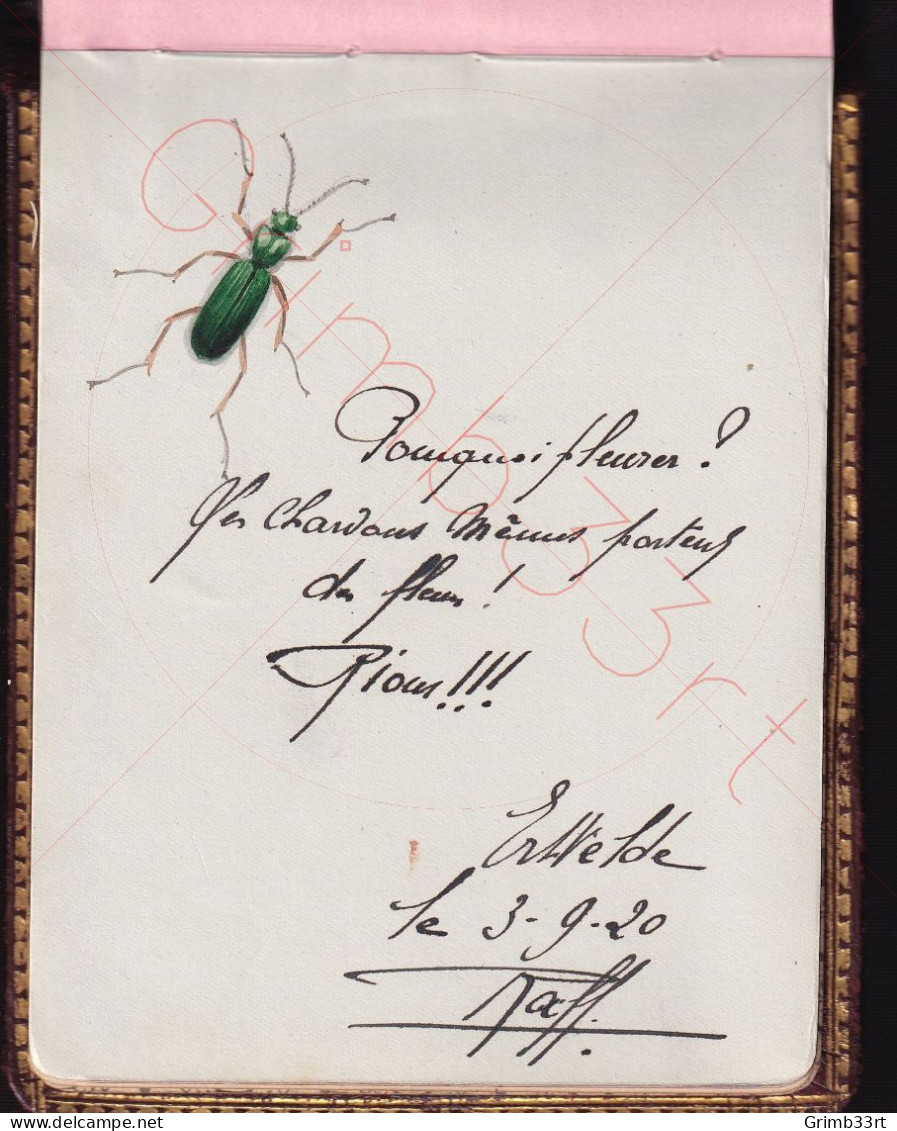 Pourquoi pleurer ?
Les Chardons Mêmes portent
des fleurs !
Rions !!!
Ertvelde
le 3-9-20
Raff.
Grimb33rt
delcampe.net
Grimb33rt